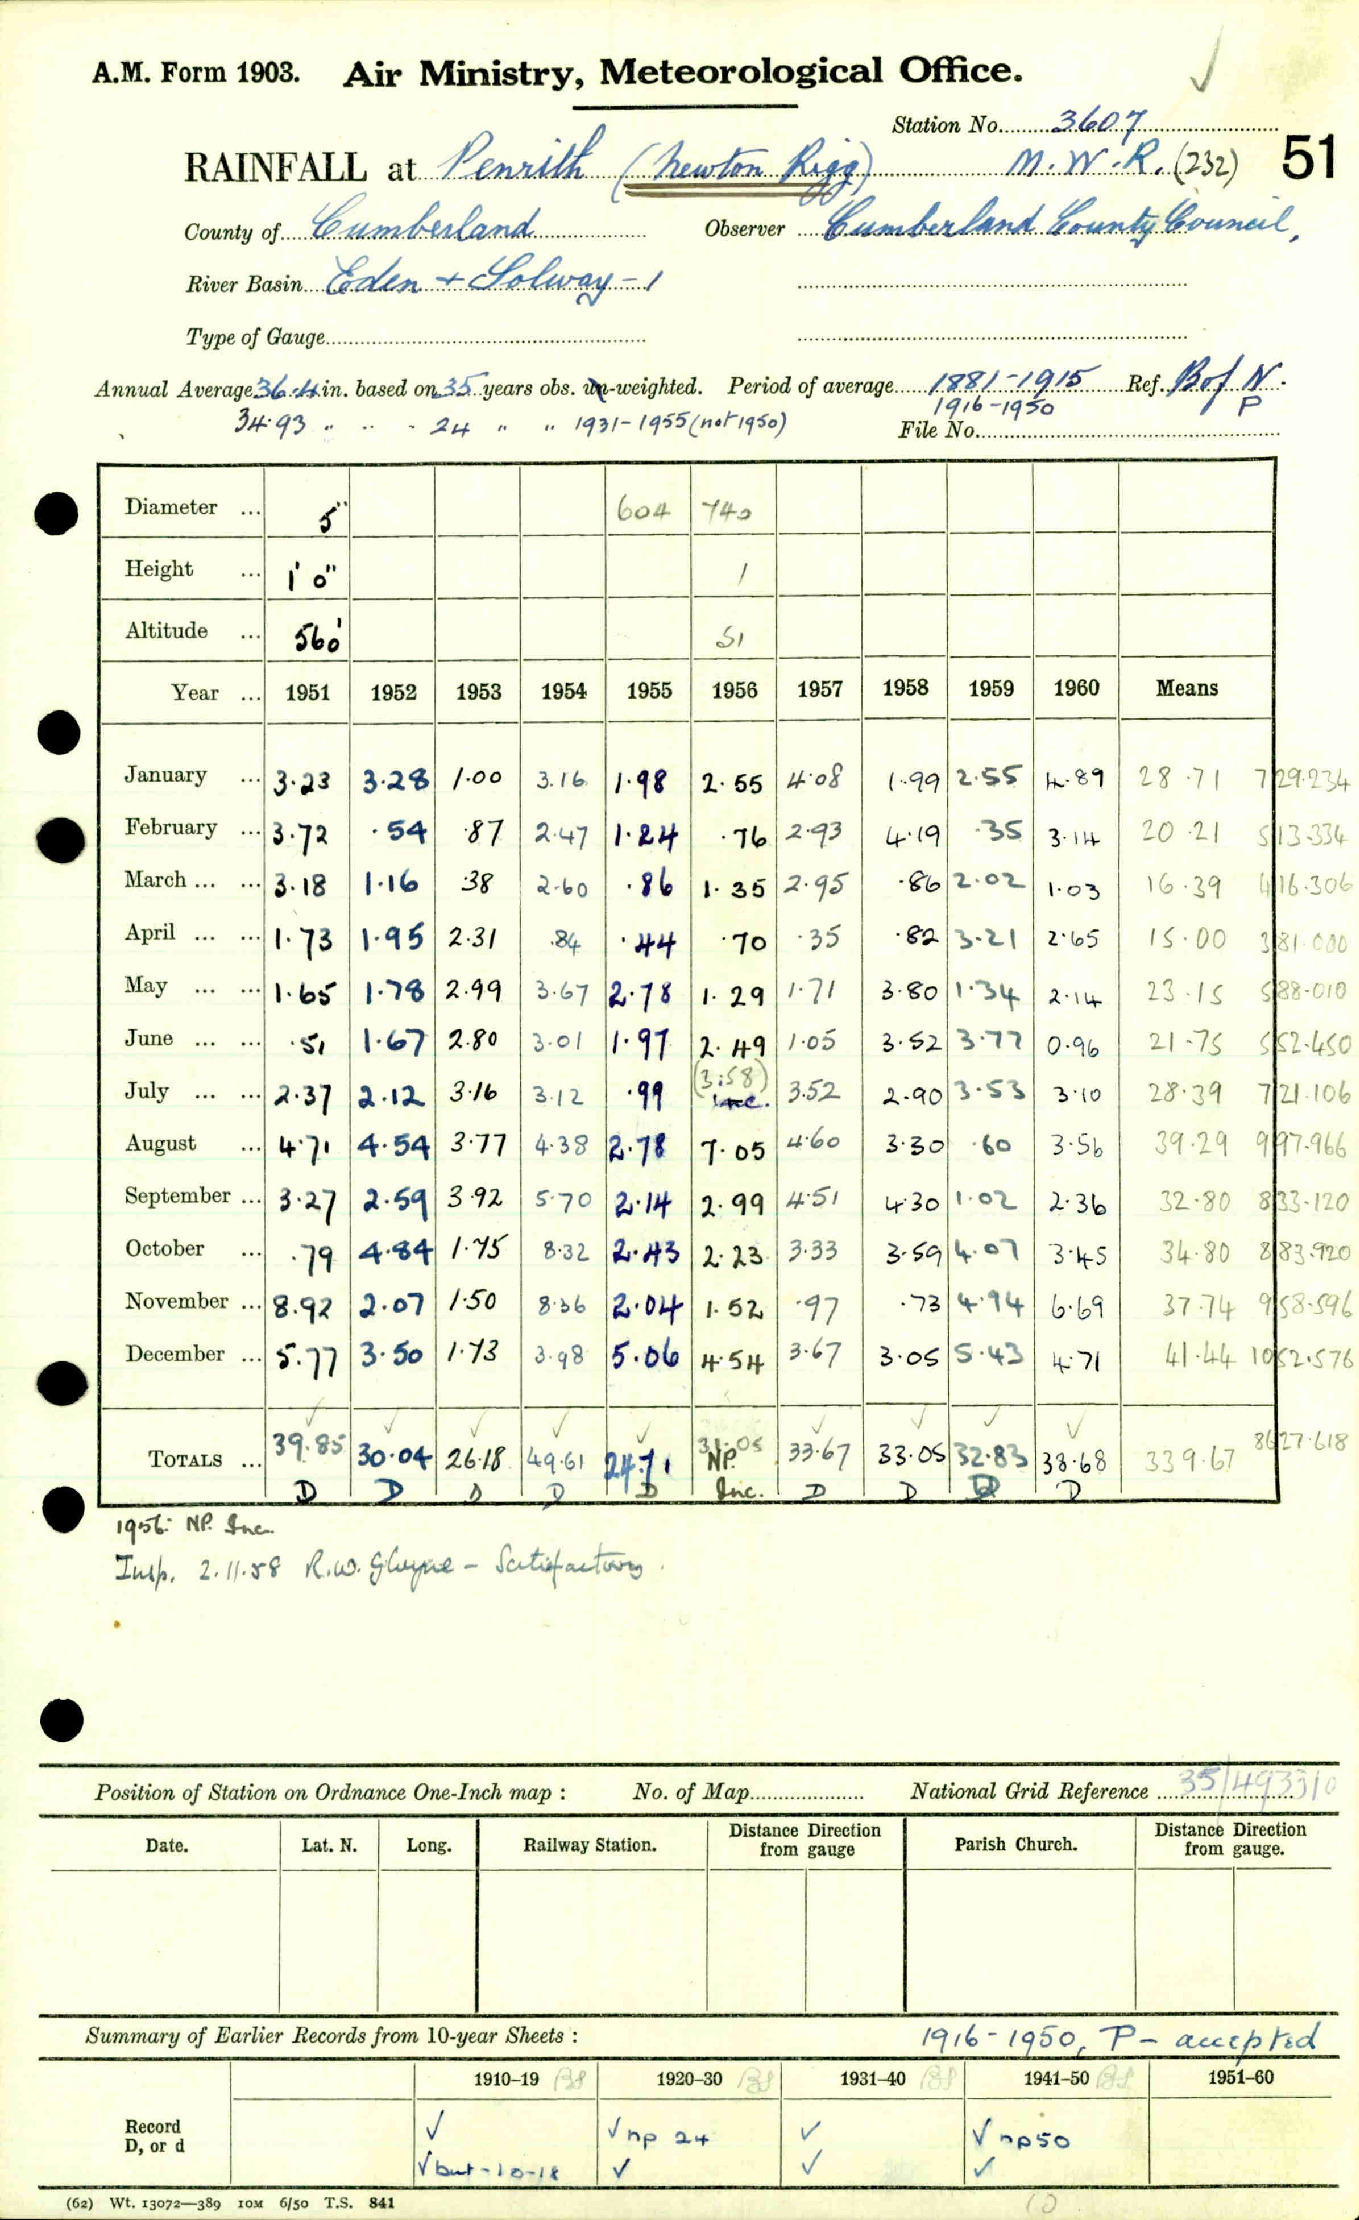 A.M. Form 1903. Air Ministry, Meteorological Office.
Station No. 3607
RAINFALL at Penrith (Newton Rigg) M.W.R. (232) 51
County of Cumberland Observer Cumberland County Council,
River Basin Eden + Solway - 1
Type of Gauge
Annual Average 36.4 in. based on 35 years obs. un-weighted. Period of average 1881-1915 Ref. B of N.
34.93 " " " 24 " " 1931-1955 (not 1950) 1916-1950 P
File No.
Diameter ... 5" 604 740
Height ... 1' 0" 1
Altitude ... 560' 51
Year ... 1951 1952 1953 1954 1955 1956 1957 1958 1959 1960 Means
January ... 3.23 3.28 1.00 3.16 1.98 2.55 4.08 1.99 2.55 4.89 28.71 729.234
February ... 3.72 .54 .87 2.47 1.24 .76 2.93 4.19 .35 3.14 20.21 513.334
March ... ... 3.18 1.16 .38 2.60 .86 1.35 2.95 .86 2.02 1.03 16.39 416.306
April ... ... 1.73 1.95 2.31 .84 .44 .70 .35 .82 3.21 2.65 15.00 381.000
May ... ... 1.65 1.78 2.99 3.67 2.78 1.29 1.71 3.80 1.34 2.14 23.15 588.010
June ... ... .51 1.67 2.80 3.01 1.97 2.49 1.05 3.52 3.77 0.96 21.75 552.450
July ... ... 2.37 2.12 3.16 3.12 .99 (3.58) inc. 3.52 2.90 3.53 3.10 28.39 721.106
August ... 4.71 4.54 3.77 4.38 2.78 7.05 4.60 3.30 .60 3.56 39.29 997.966
September ... 3.27 2.59 3.92 5.70 2.14 2.99 4.51 4.30 1.02 2.36 32.80 833.120
October ... .79 4.84 1.75 8.32 2.43 2.23 3.33 3.59 4.07 3.45 34.80 883.920
November ... 8.92 2.07 1.50 8.36 2.04 1.52 .97 .73 4.94 6.69 37.74 958.596
December ... 5.77 3.50 1.73 3.98 5.06 4.54 3.67 3.05 5.43 4.71 41.44 1052.576
TOTALS ... 39.85 30.04 26.18 49.61 24.71 31.05 NP. 33.67 33.05 32.83 38.68 339.67 8627.618
D D D D D Inc. D D D D
1956: NP. Inc.
Insp. 2.11.58 R.W. Gloyne - Satisfactory.
Position of Station on Ordnance One-Inch map : No. of Map National Grid Reference 35/493310
Date. Lat. N. Long. Railway Station. Distance from gauge Direction Parish Church. Distance from gauge. Direction
Summary of Earlier Records from 10-year Sheets : 1916-1950, P - accepted
1910-19 1920-30 1931-40 1941-50 1951-60
Record D, or d ✓ ✓ np 24 ✓ ✓ np50
✓ but -10-18 ✓ ✓ ✓
(62) Wt. 13072—389 10M 6/50 T.S. 841